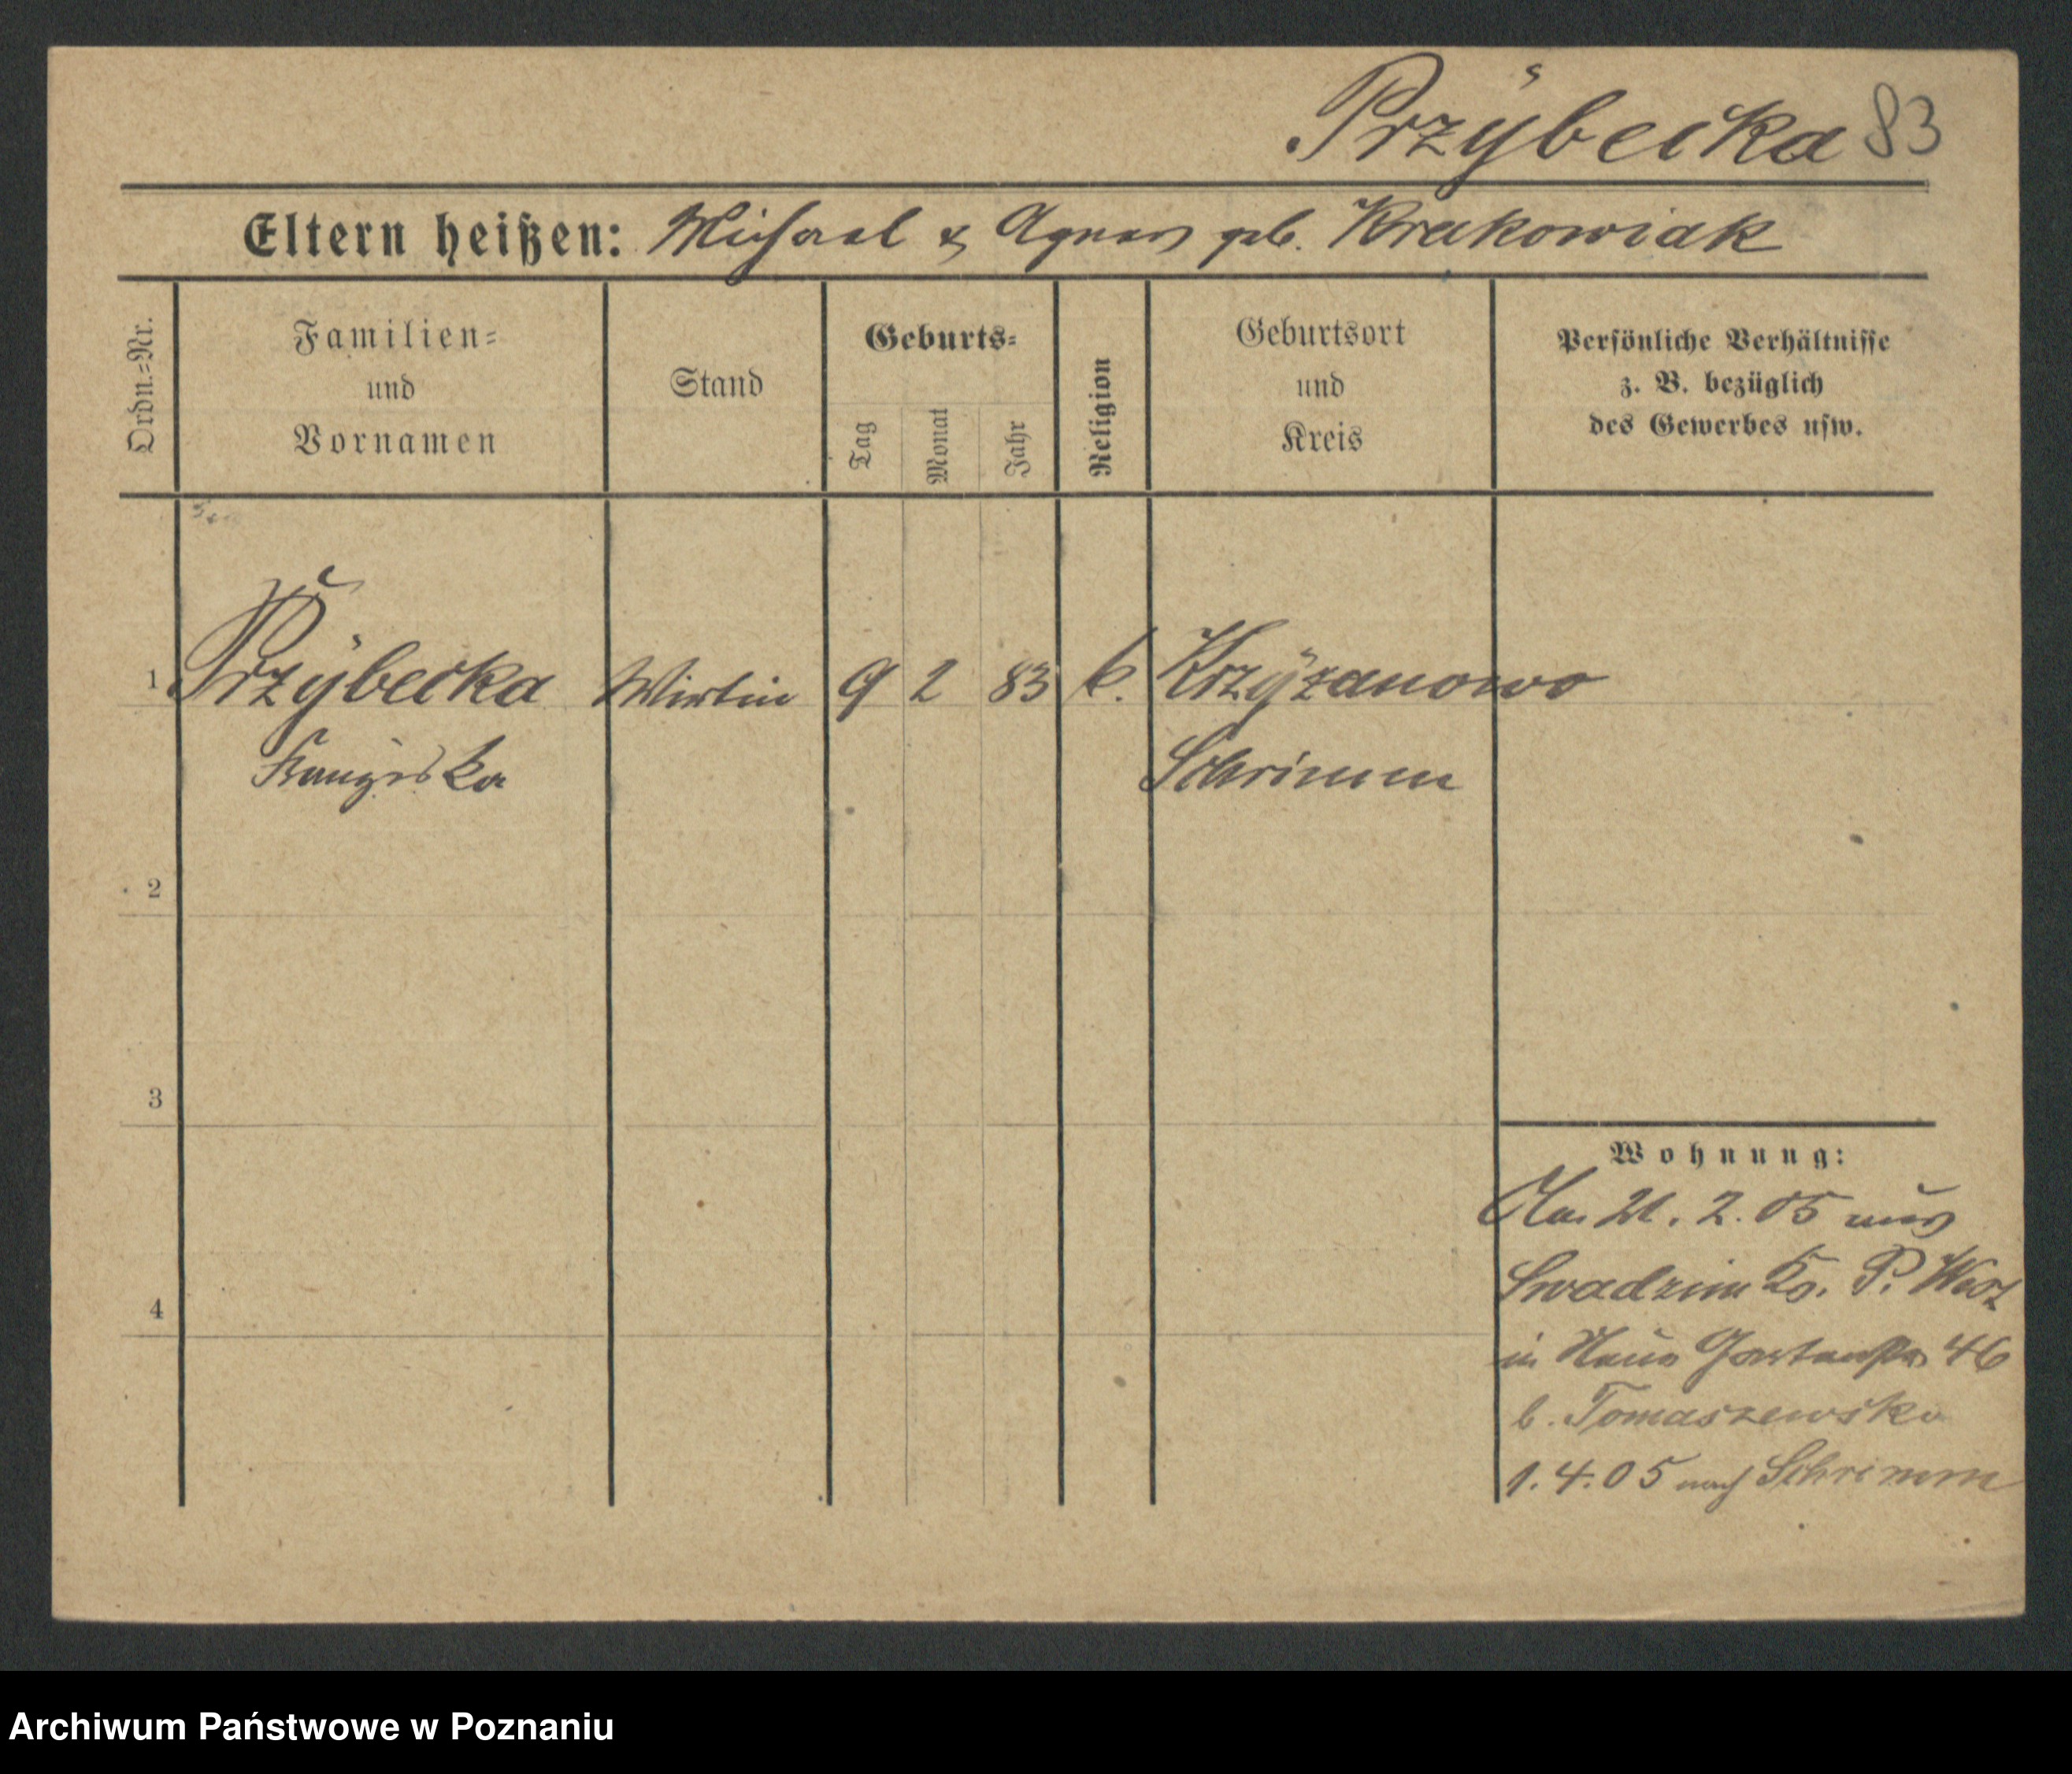 Przÿbecka 83
Eltern heißen: Michael & Agnes geb. Krakowiak
Ordn.=Nr.
Familien=
und
Vornamen
Stand
Geburts=
Tag
Monat
Jahr
Religion
Geburtsort
und
Kreis
Persönliche Verhältnisse
z. B. bezüglich
des Gewerbes usw.
1 Przÿbecka Wirtin 9 2 83 k. Krzÿzanowo
Franziska Schrimm
2
3
4
Wohnung:
21. 2. 05 aus
Swadzim Kr. P. West
in Haus Gartenstr 46
b. Tomaszewska
1. 4. 05 nach Schrimm
Archiwum Państwowe w Poznaniu